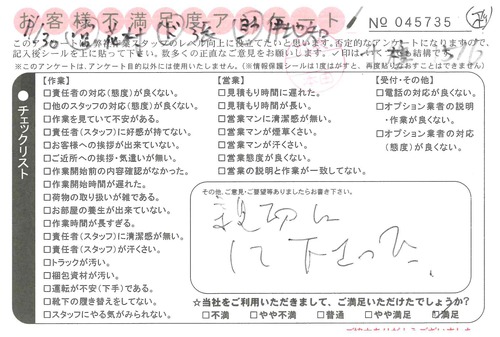 お客様不満足度アンケート
No 045735
このアンケートは弊社作業スタッフのレベル向上に役立てたいと思います。否定的なアンケートになりますので、
記入後シールを上に貼って下さい。数多くの正直なご意見をお願いします。
※このアンケートは、アンケート目的以外には使用いたしません。(※情報保護シールは1度はがすと、再度貼りなおすことはできません)
チェックリスト
【作業】
□責任者の対応(態度)が良くない。
□他のスタッフの対応(態度)が良くない。
□作業を見ていて不安がある。
□責任者(スタッフ)に好感が持てない。
□お客様への挨拶が出来ていない。
□ご近所への挨拶・気遣いが無い。
□作業開始前の内容確認がなかった。
□作業開始時間が遅れた。
□荷物の取り扱いが雑である。
□お部屋の養生が出来ていない。
□作業時間が長すぎる。
□責任者(スタッフ)に清潔感が無い。
□責任者(スタッフ)が汗くさい。
□トラックが汚い。
□梱包資材が汚い。
□運転が不安(下手)である。
□靴下の履き替えをしてない。
□スタッフにやる気がみられない。
【営業】
□見積もり時間に遅れた。
□見積もり時間が長い。
□営業マンに清潔感が無い。
□営業マンが煙草くさい。
□営業マンが汗くさい。
□営業態度が良くない。
□営業の説明と作業が一致してない。
【受付・その他】
□電話の対応が良くない。
□オプション業者の説明
・作業が良くない。
□オプション業者の対応
(態度)が良くない。
その他、ご意見・ご要望等ありましたらお書き下さい。
親切に
して下さった。
☆当社をご利用いただきまして、ご満足いただけたでしょうか?
□不満 □やや不満 □普通 □やや満足 ☑満足
ご協力ありがとうございました